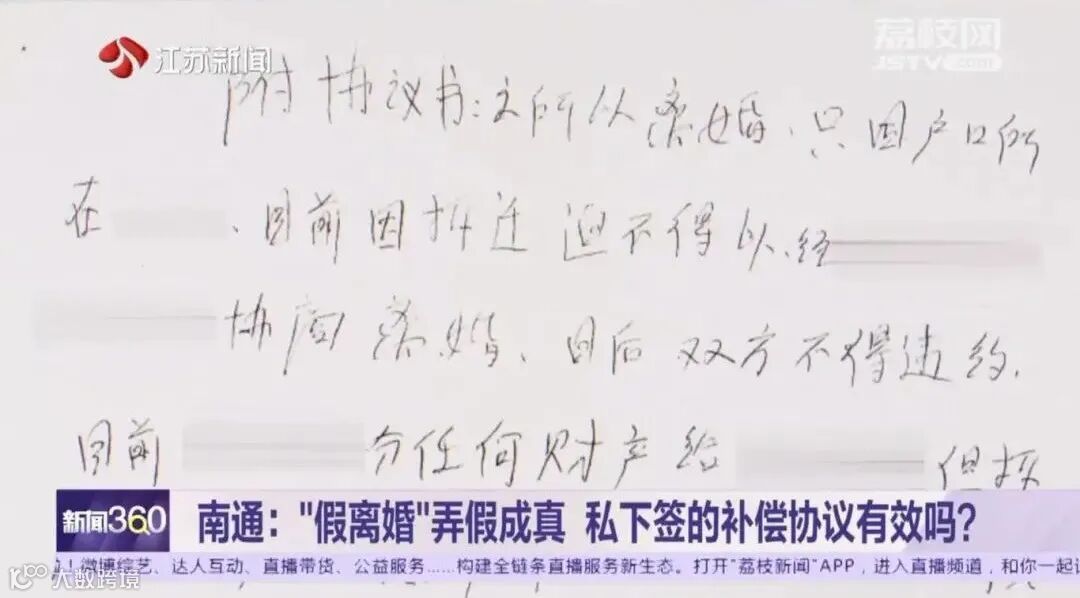 江苏新闻
荔枝网
JSTV.com
附协议书:之所以离婚、只因户口所
在 、目前因拆迁迫不得以、经
协商离婚、日后双方不得违约.
目前 分任何财产给 但拆
新闻360
南通："假离婚"弄假成真 私下签的补偿协议有效吗？
微博综艺、达人互动、直播带货、公益服务……构建全链条直播服务新生态。打开"荔枝新闻"APP，进入直播频道，和你一起
大数跨境